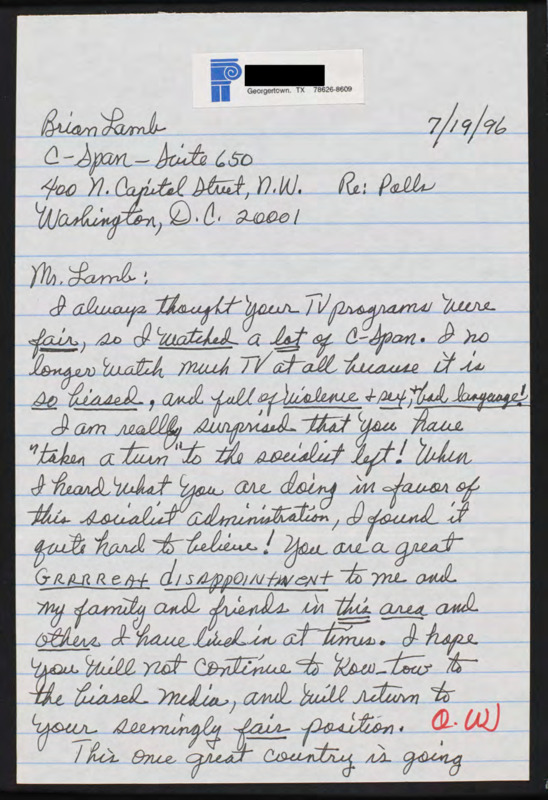 Georgetown, TX 78626-8609
Brian Lamb 7/19/96
C-Span - Suite 650
400 N. Capitol Street, N.W. Re: Polls
Washington, D.C. 20001
Mr. Lamb:
I always thought your TV programs were
fair, so I watched a lot of C-Span. I no
longer watch much TV at all because it is
so biased, and full of violence + sex, + bad language!
I am really surprised that you have
"taken a turn" to the socialist left! When
I heard what you are doing in favor of
this socialist administration, I found it
quite hard to believe! You are a great
GRRRREAt dISAPPOINtMENt to me and
my family and friends in this area and
others I have lived in at times. I hope
you will not continue to Kow-tow to
the biased media, and will return to
your seemingly fair position. O.W
This one great country is going